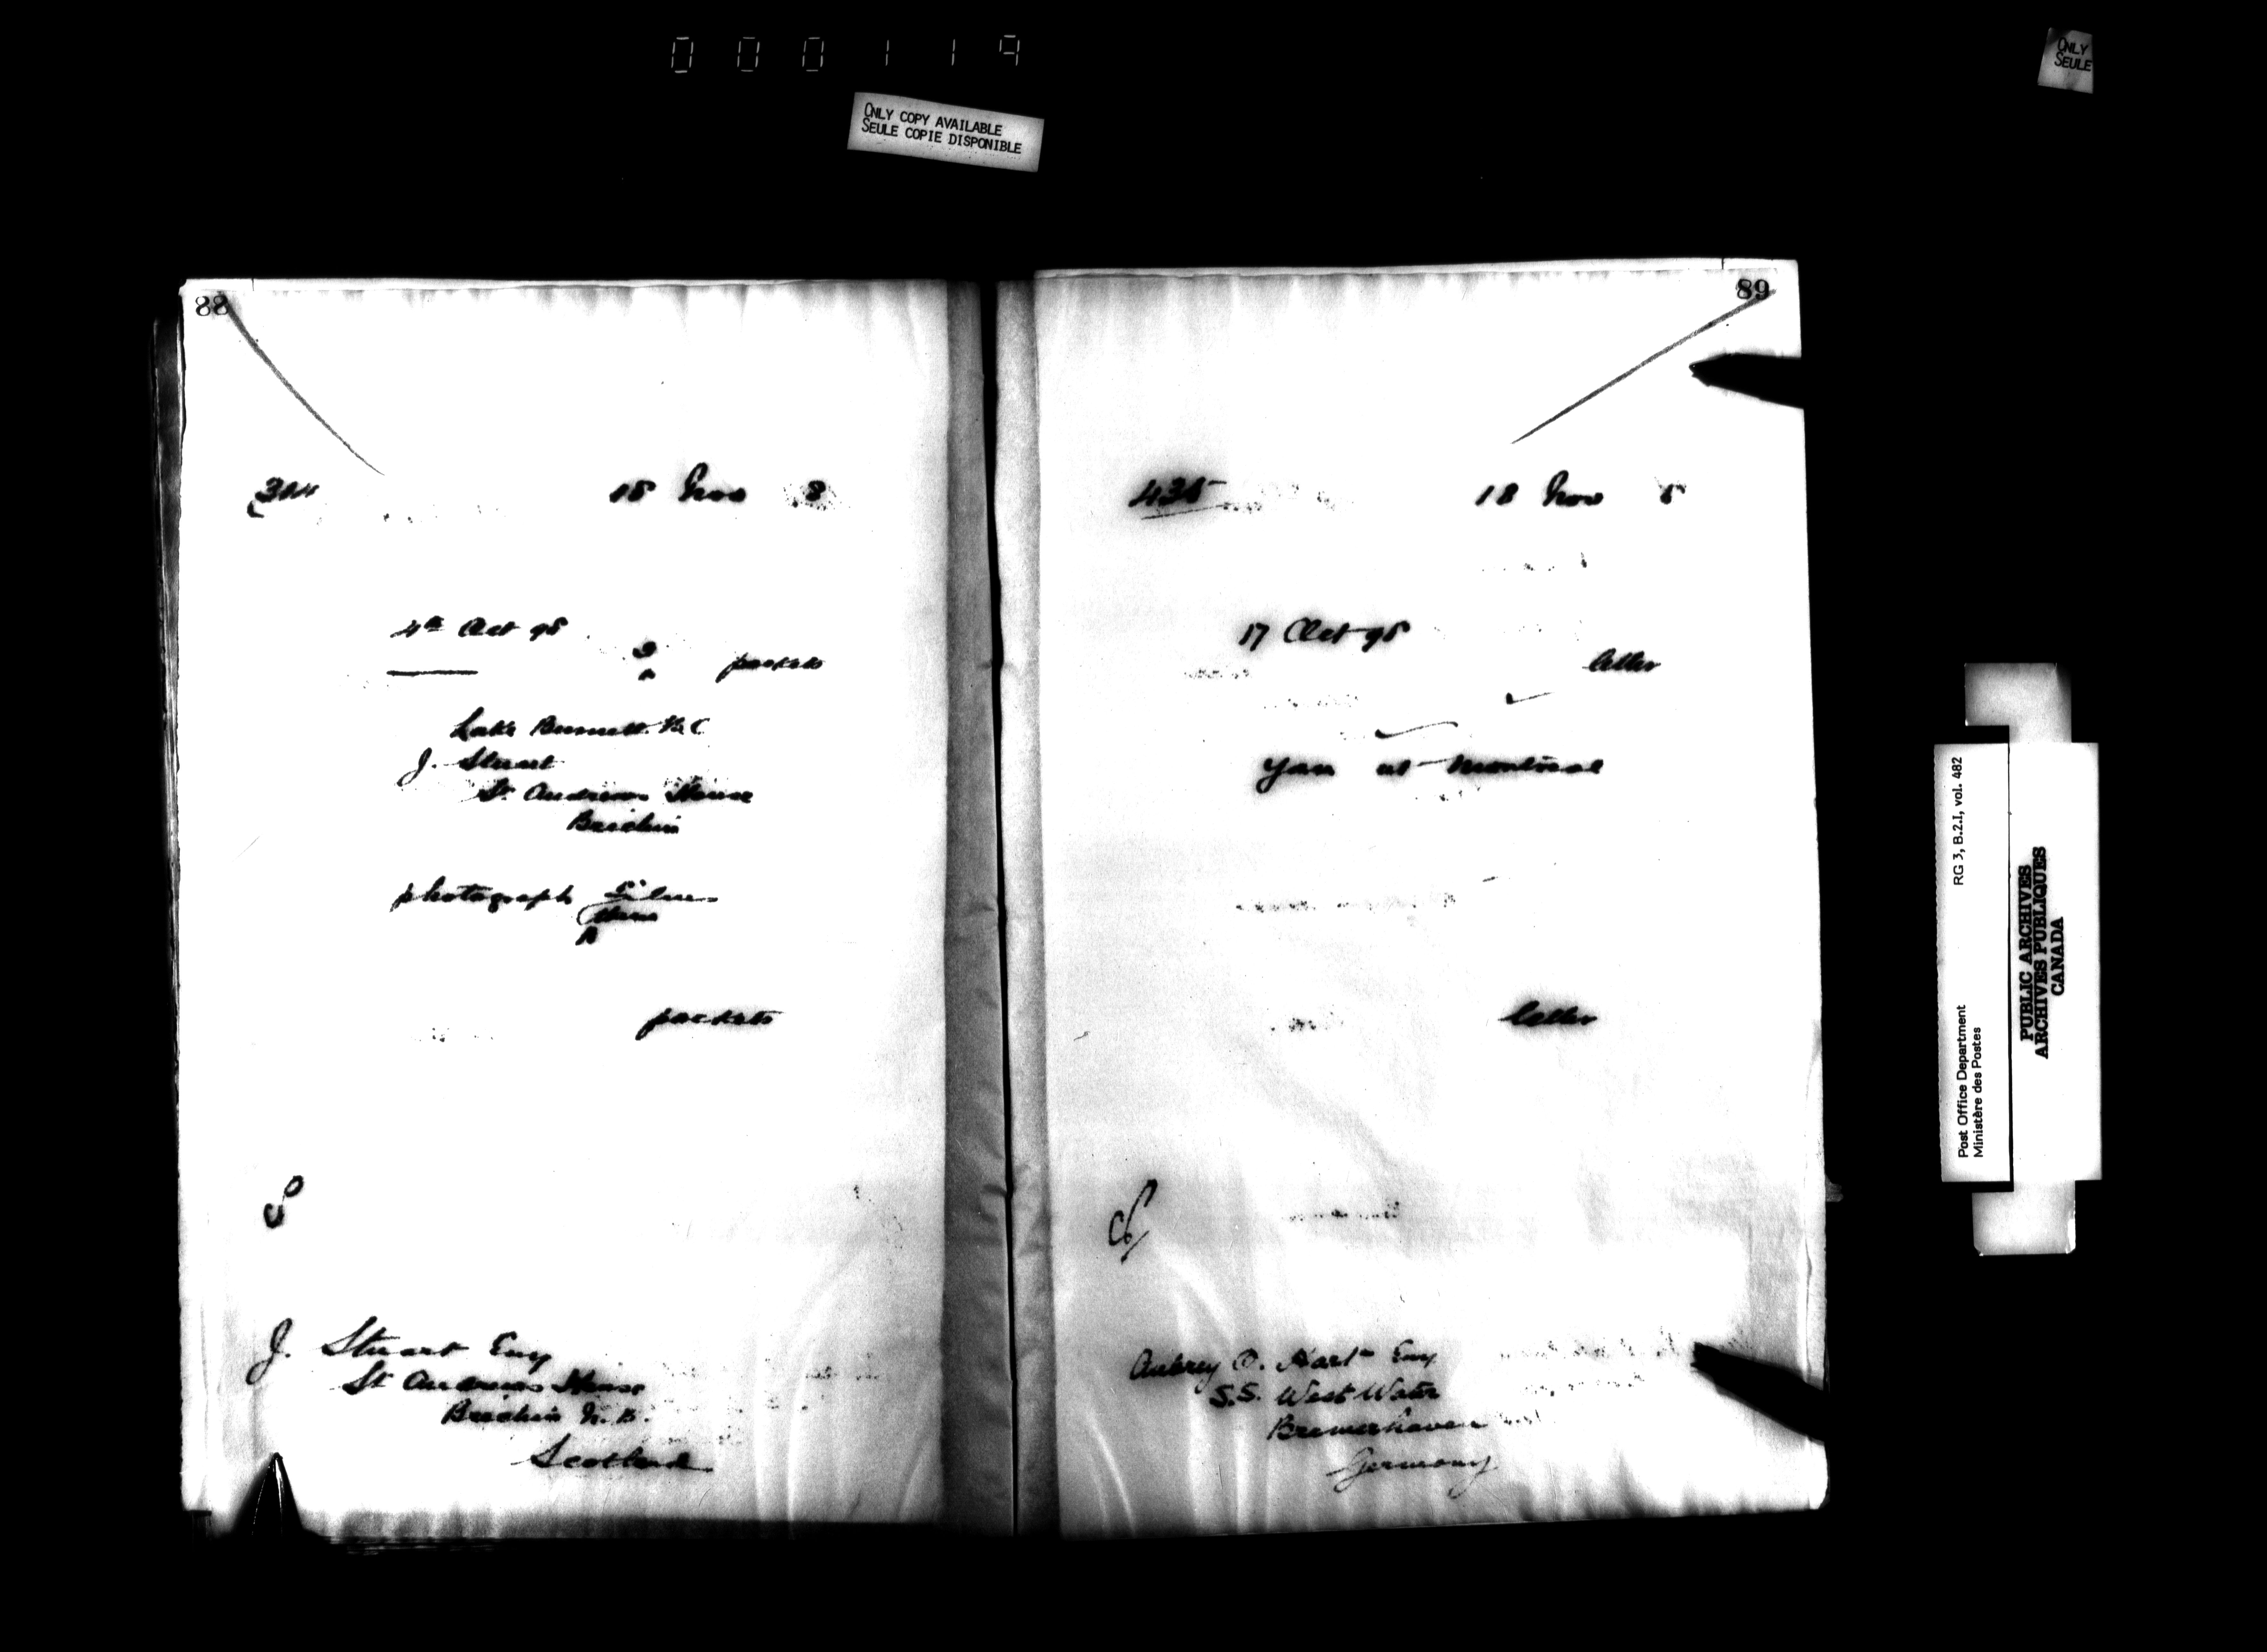 000119
ONLY COPY AVAILABLE
SEULE COPIE DISPONIBLE
ONLY
SEULE
88
18 Nov 8
4th Oct 98
packets
J. Stuart
St. Andrews House
Brechin
photograph films
packets
J. Stuart Esq
St Andrews House
Brechin N.B.
Scotland
89
435
18 Nov 8
17 Oct 98
letter
you at Montreal
letter
Aubrey O. Hart Esq
S.S. West Water
Bremerhaven
Germany
Post Office Department
Ministère des Postes
RG 3, B.2.I, vol. 482
PUBLIC ARCHIVES
ARCHIVES PUBLIQUES
CANADA